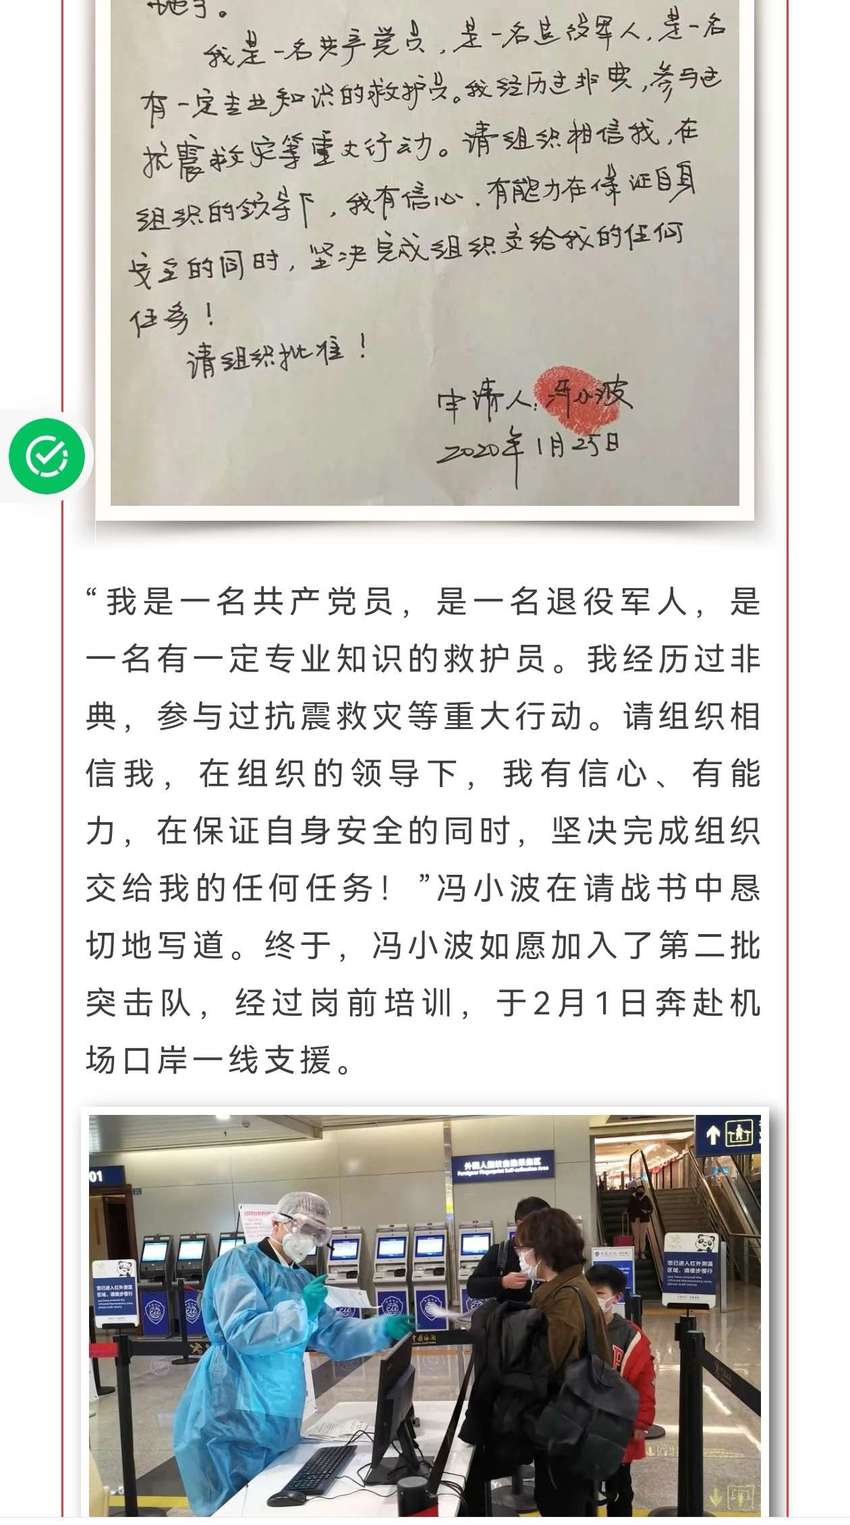 地了。
我是一名共产党员，是一名退役军人，是一名
有一定专业知识的救护员。我经历过非典，参与过
抗震救灾等重大行动。请组织相信我，在
组织的领导下，我有信心、有能力在保证自身
安全的同时，坚决完成组织交给我的任何
任务！
请组织批准！
申请人：冯小波
2020年1月25日
“我是一名共产党员，是一名退役军人，是
一名有一定专业知识的救护员。我经历过非
典，参与过抗震救灾等重大行动。请组织相
信我，在组织的领导下，我有信心、有能
力，在保证自身安全的同时，坚决完成组织
交给我的任何任务！”冯小波在请战书中恳
切地写道。终于，冯小波如愿加入了第二批
突击队，经过岗前培训，于2月1日奔赴机
场口岸一线支援。
01
外国人指纹自助采集区
Foreigner Fingerprint Self-collection Area
您已进入红外测温
区域，请缓步慢行
您已进入红外测温
区域，请缓步慢行